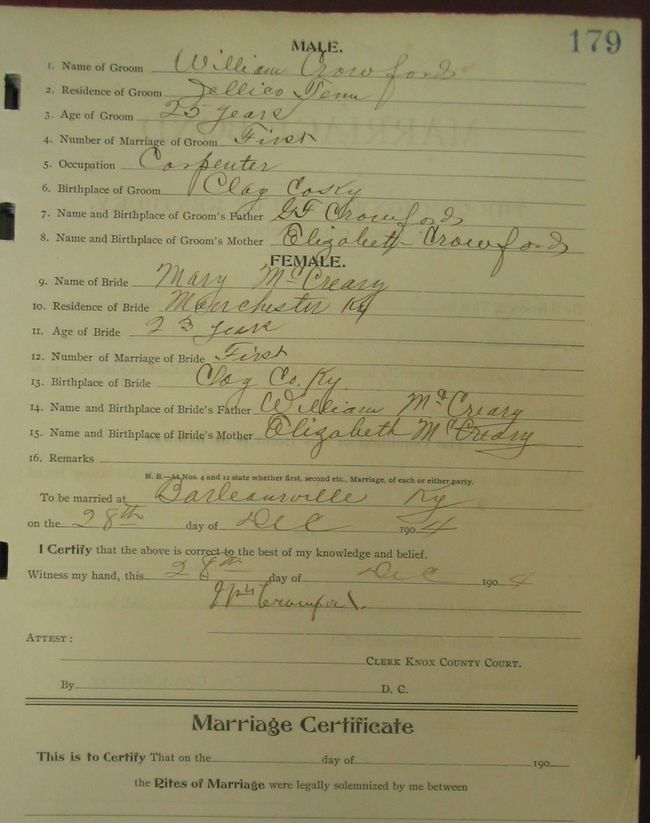 179
MALE.
1. Name of Groom William Crowford
2. Residence of Groom Jellico Tenn
3. Age of Groom 25 years
4. Number of Marriage of Groom First
5. Occupation Carpenter
6. Birthplace of Groom Clay Co Ky
7. Name and Birthplace of Groom's Father GF Crowford
8. Name and Birthplace of Groom's Mother Elizabeth Crowford
FEMALE.
9. Name of Bride Mary McCreary
10. Residence of Bride Manchester Ky
11. Age of Bride 23 years
12. Number of Marriage of Bride First
13. Birthplace of Bride Clay Co. Ky.
14. Name and Birthplace of Bride's Father William McCreary
15. Name and Birthplace of Bride's Mother Elizabeth McCreary
16. Remarks
N. B.—At Nos. 4 and 12 state whether first, second etc., Marriage, of each or either party.
To be married at Barbourville Ky
on the 28th day of Dec 1904
I Certify that the above is correct to the best of my knowledge and belief.
Witness my hand, this 28th day of Dec 1904
Wm Crawford.
ATTEST:
CLERK KNOX COUNTY COURT.
By D. C.
Marriage Certificate
This is to Certify That on the day of 190
the Rites of Marriage were legally solemnized by me between